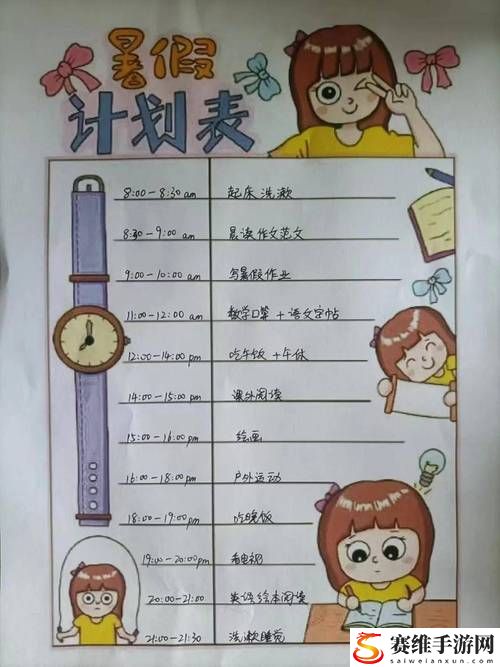 暑假
计划表
8:00-8:30 am 起床洗漱
8:30-9:00 am 晨读作文范文
9:00-10:00 am 写暑假作业
11:00-12:00 am 数学口算+语文字帖
12:00-14:00 pm 吃午饭+午休
14:00-15:00 pm 课外阅读
15:00-16:00 pm 绘画
16:00-18:00 pm 户外运动
18:00-19:00 pm 吃晚饭
19:00-20:00 pm 看电视
20:00-21:00 英语绘本阅读
21:00-21:30 洗漱睡觉
赛维手游网
saiweianxun.com